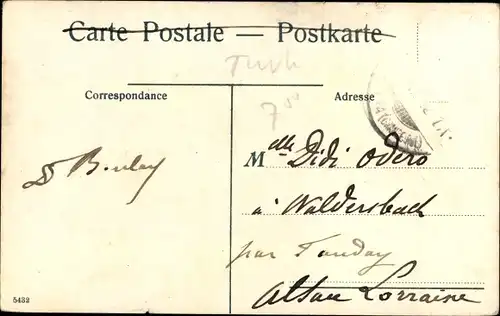 Carte Postale — Postkarte
Turk
7
Correspondance
Adresse
Melle Didi Odero
à Waldersbach
par Fouday
Alsace Lorraine
5432